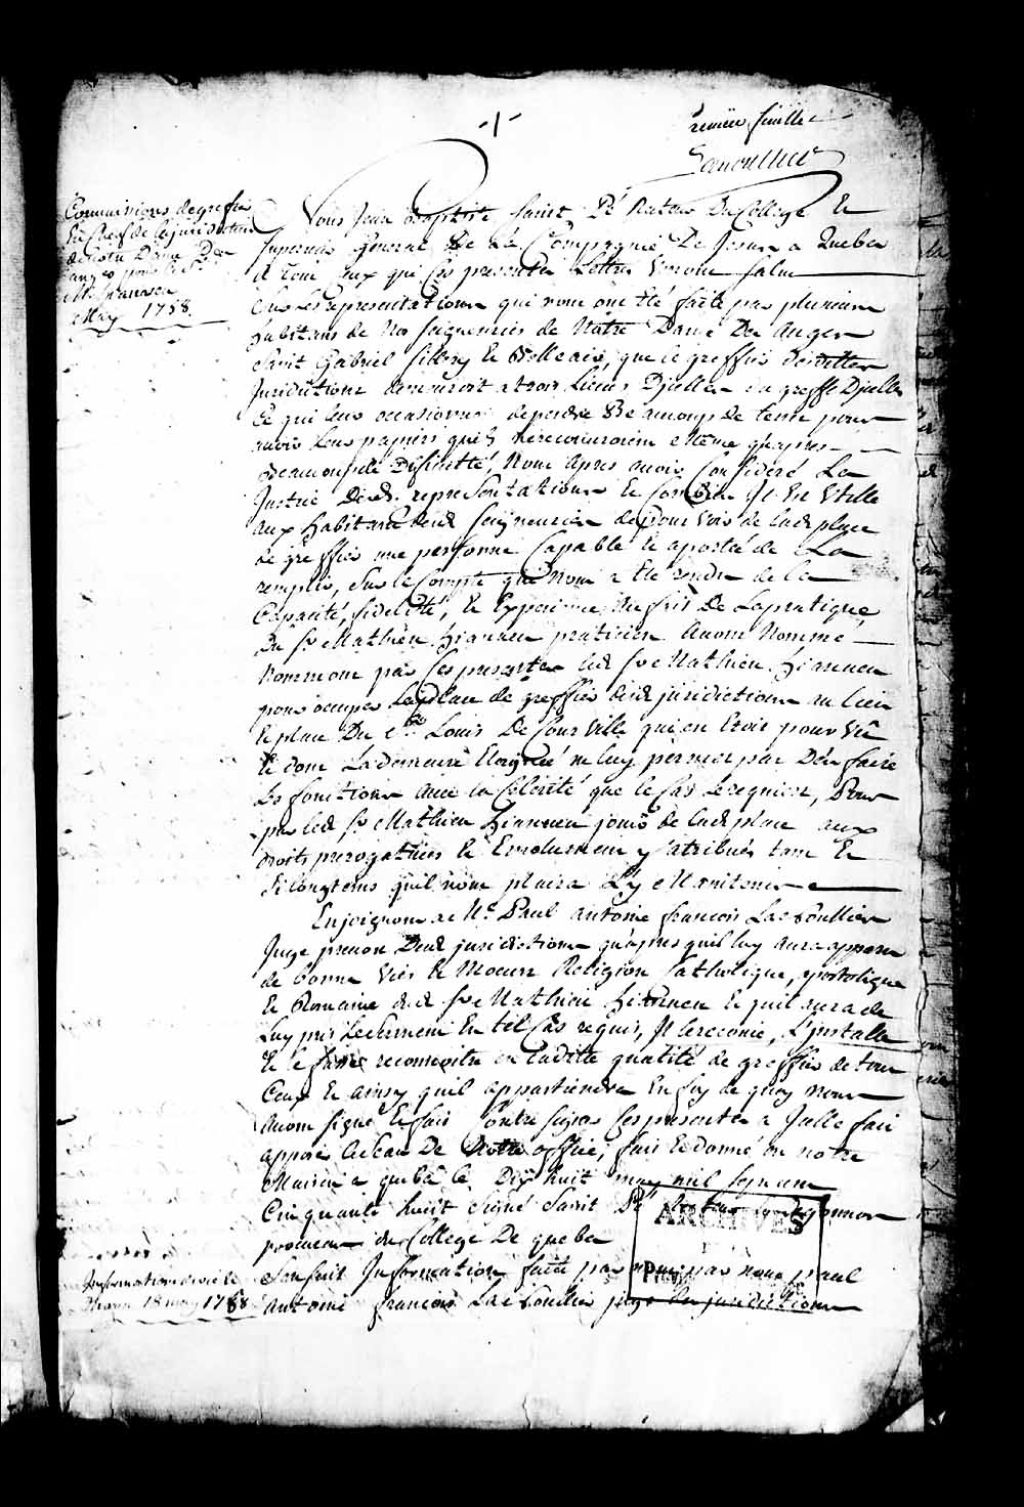 -1-
premiere feuille
Lanoullier
Commissions de greffier
En Chef de la jurisdiction
de notre Dame Des
anges pour le Sr
Mt. hianveu
May 1758
Nous Jean Baptiste Saint Pé Recteur Du College Et
Superieur General De La Compagnie De Jesus a Quebec
A tous ceux qui Ces presentes Lettres Verront Salut
Sur Les representations qui nous ont Eté faite par plusieurs
habitans de Nos Seigneuries de Nôtre Dame Des anges
Saint Gabriel Sillery Et Belleair, que le greffier desdittes
Jurisdictions demeuroit a trois Lieues Djcelles
Ce qui leur occasionnoit de perdre Beaucoup de tems pour
avoir leurs papiers qu'ils ne recouvroient même qu'apres
Beaucoup de Dificulté, Nous Apres avoir Considéré La
Justice Desd. representations Et Combien Il Est Utille
aux habitans desd Seigneuries de pourvoir de lad place
de greffier une personne Capable Et aportée de La
remplir, Sur le Compte qui Nous a Eté rendu de la
Capacité, fidelité, Et Experience au fait De La pratique
Du Sr Mathieu hianveu praticien Avons Nommé
Nommons par Ces presentes led Sr Mathieu hianveu
pour ocuper La place de greffier desd jurisdictions au lieu
Et place Du Sr Louis De Courville qui en Etoit pourvû
Et dont La demeure Eloignée ne luy permet pas D'en faire
Les fonctions avec la Celerité que le Cas Le requiert, Pour
par led Sr Mathieu hianveu jouir de lad place aux
droits prerogatives Et Emolumens y atribués tant Et
Si longtems qu'il nous plaira L'y Maintenir
Enjoignons a Me Paul antoine francois Lanoullier
Juge prevost Desd jurisdictions qu'apres quil luy aura apparu
de bonne Vies Et Moeurs Religion Catholique, apostolique
Et Romaine dud Sr Mathieu hianveu Et quil aura de
Luy pris Le Serment En tel Cas requis, Il Le recoive, L'installe
Et le fasse reconnoitre en Ladite qualité de greffier de tous
Ceux Et ainsy quil appartiendra En foy de quoy nous
Avons signé Et fait Contre signer Ces presentes a Jcelle fait
apposer Le Sceau De Notre office; fait Et donné en notre
Maison a quebec le Dix huit may mil Sept cent
Cinquante huit Signé Saint Pé
procureur du College De quebec
Information de vie et
Moeurs 18 may 1758
Sensuit Information faite par nous paul
Antoine francois Lanoullier juge des jurisdictions
ARCHIVES